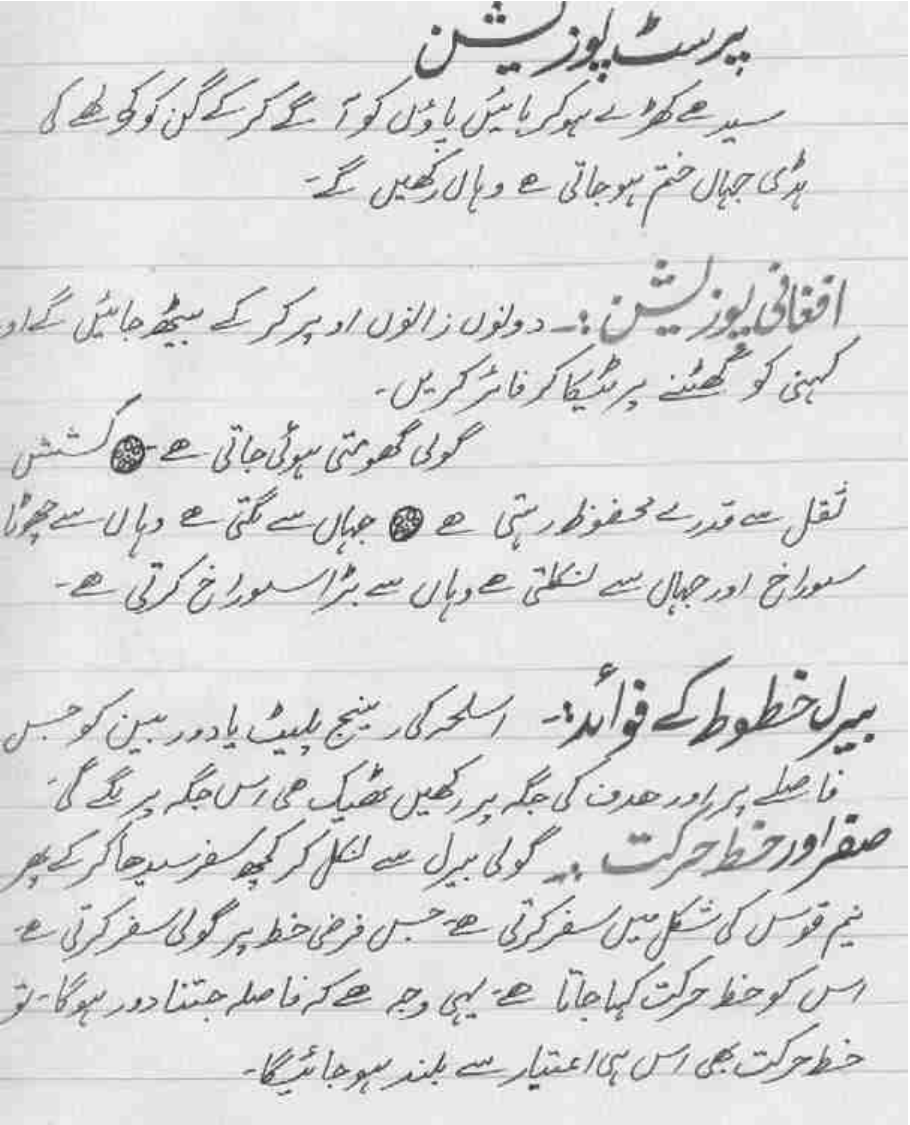 پرسٹ پوزیشن
سیدھے کھڑے ہوکر بائیں پاؤں کو آگے کرکے گن کو کولھے کی
ہڈی جہاں ختم ہوجاتی ھے وہاں رکھیں گے۔
افغانی پوزیشن :۔ دونوں زانوں اوپر کر کے بیٹھ جائیں گے او
کہنی کو گھٹنے پر ٹیکا کر فائر کریں۔
گولی گھومتی ہوئی جاتی ھے۔ کشش
ثقل سے قدرے محفوظ رہتی ھے جہاں سے لگتی ھے وہاں سے چھوٹا
سوراخ اور جہاں سے نکلتی ھے وہاں سے بڑا سوراخ کرتی ھے۔
بیرل خطوط کے فوائد :۔ اسلحہ کی رینج پلیٹ یا دوربین کو جس
فاصلے پر اور ھدف کی جگہ پر رکھیں ٹھیک ھی اس جگہ پر لگے گی۔
صفر اور خط حرکت :۔ گولی بیرل سے نکل کر کچھ سفر سیدھا کرکے پھر
نیم قوس کی شکل میں سفر کرتی ھے۔ جس فرضی خط پر گولی سفر کرتی ھے۔
اس کو خط حرکت کہا جاتا ھے۔ یہی وجہ ھے کہ فاصلہ جتنا دور ہوگا۔ تو
خط حرکت بھی اس ہی اعتبار سے بلند ہو جائیگا۔